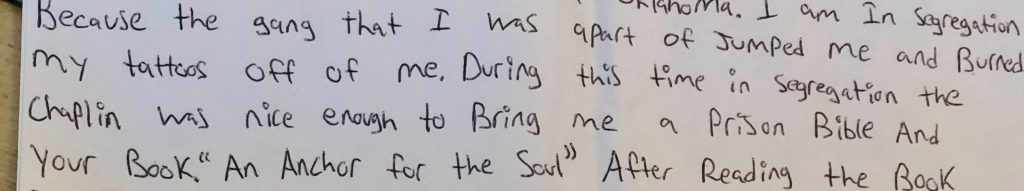 Oklahoma. I am In Segregation
Because the gang that I was apart of Jumped me and Burned
my tattoos off of me. During this time in segregation the
Chaplin was nice enough to Bring me a Prison Bible And
Your Book." An Anchor for the Soul" After Reading the Book